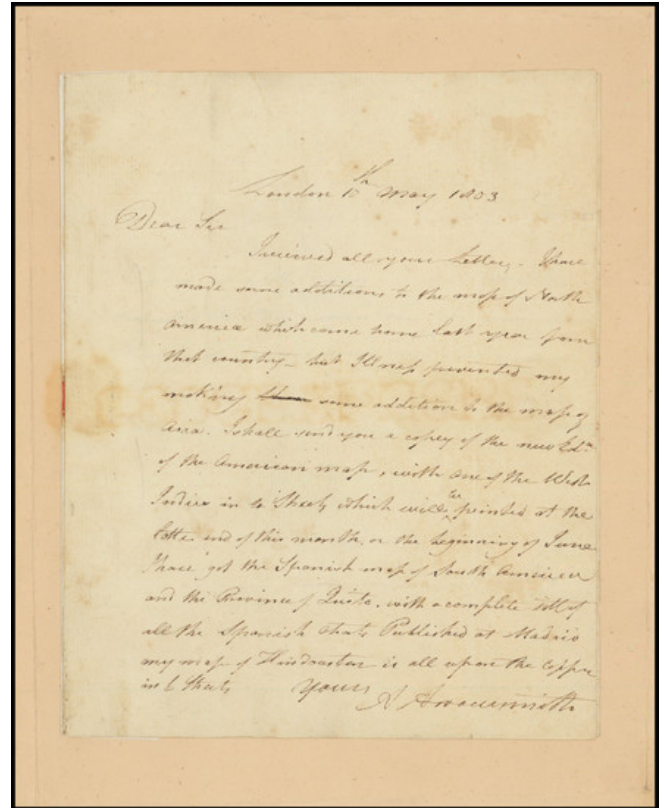 London 10th May 1803
Dear Sir
I received all your Letters. I have
made some additions to the map of North
America which came home last year from
that country - but Illness prevented my
making some addition to the map of
Asia. I shall send you a copy of the new Edn
of the American map, with one of the West
Indies in 4 Sheets which will be printed at the
latter end of this month, or the beginning of June
I have got the Spanish map of South America
and the Province of Quito, with a complete Sett of
all the Spanish Charts Published at Madrid
my map of Hindoostan is all upon the Copper
in 6 Sheets Yours A Arrowsmith